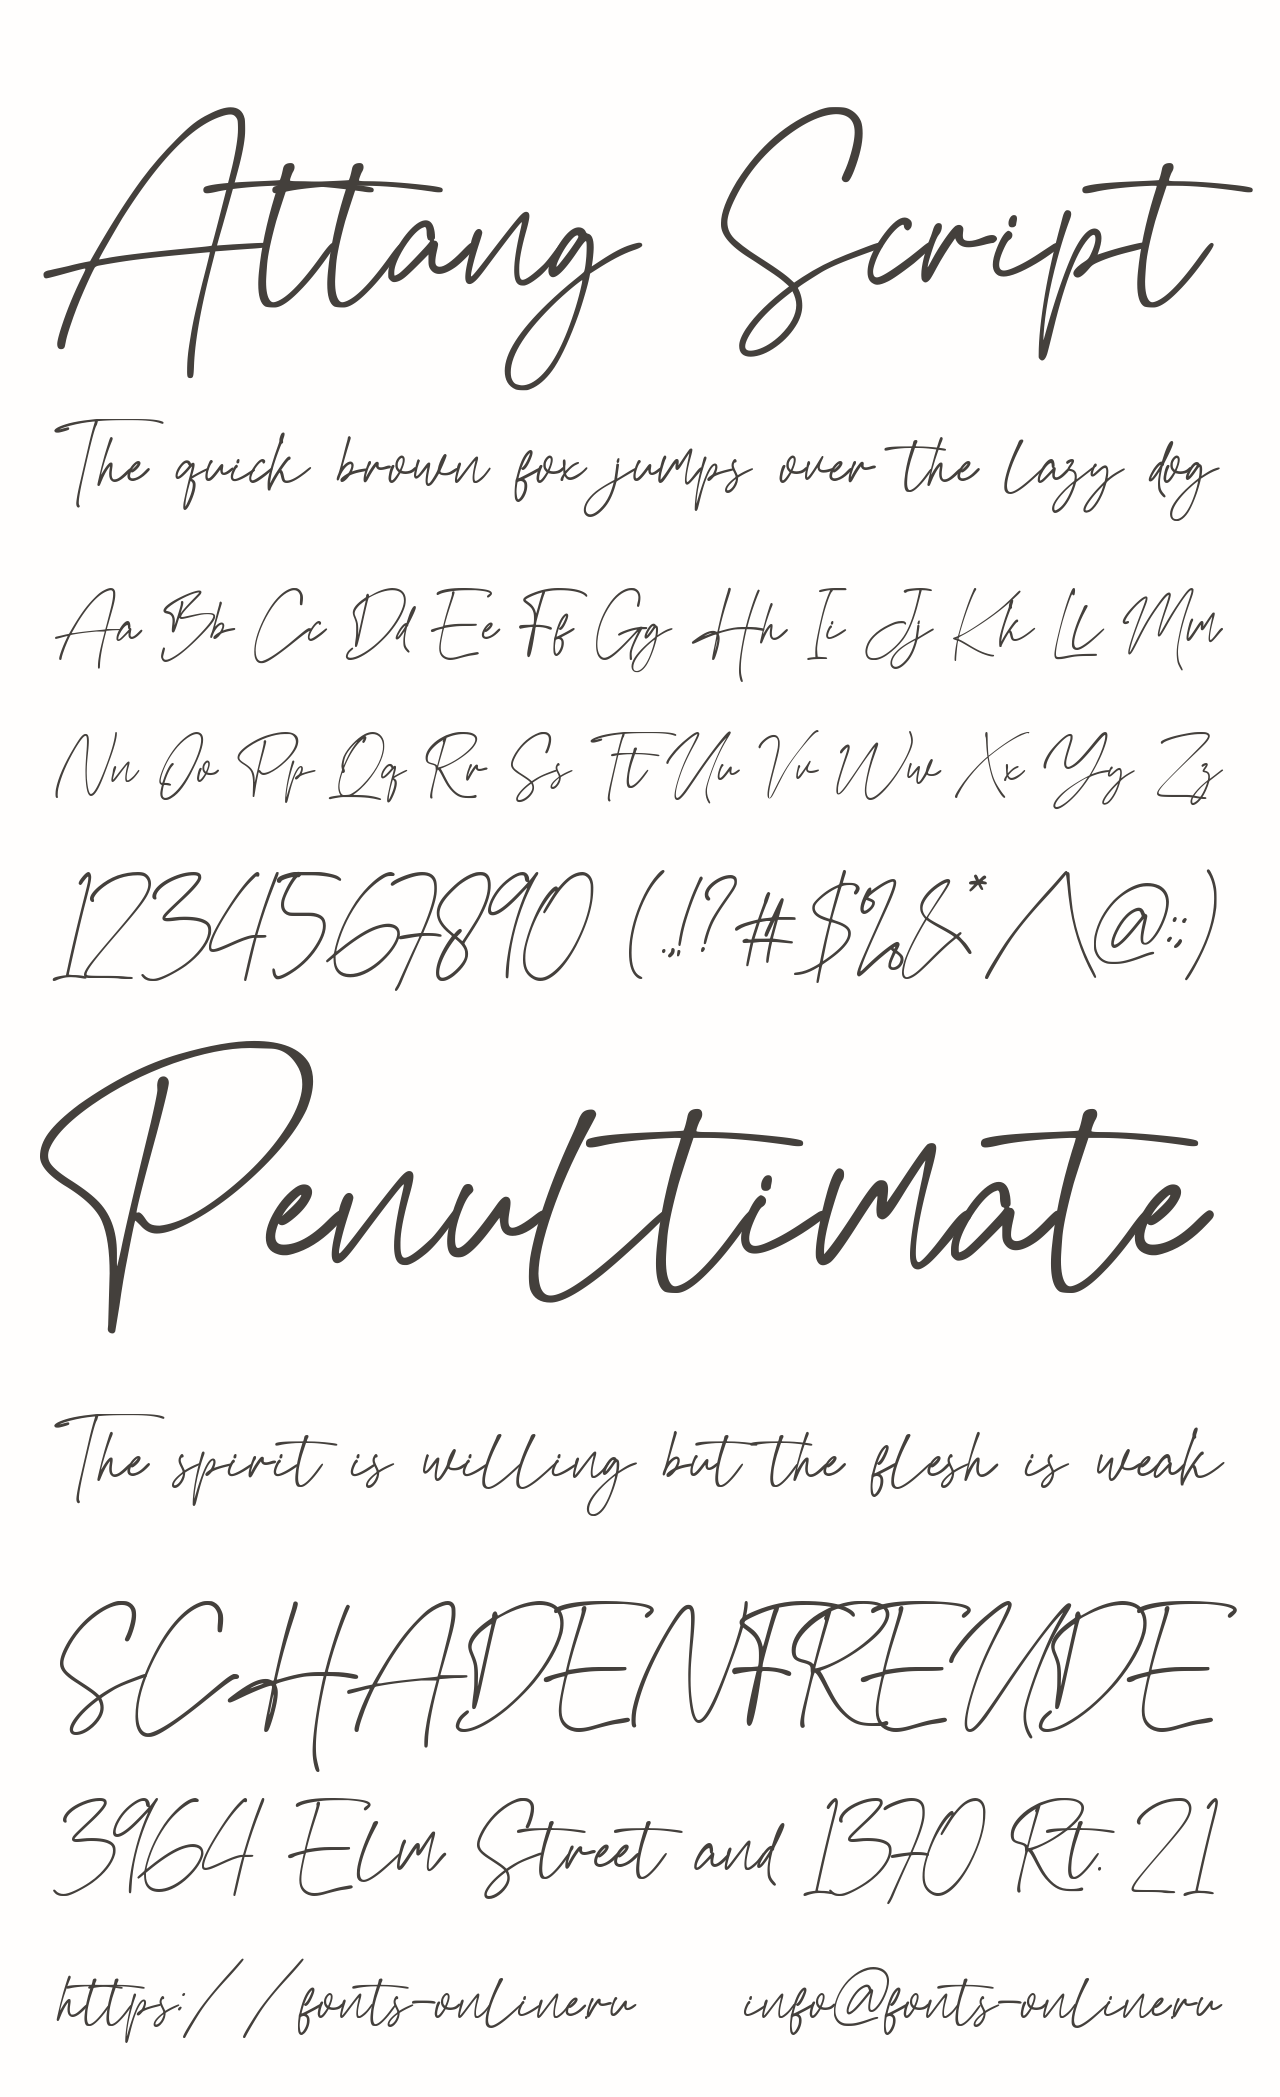 Attang Script
The quick brown fox jumps over the lazy dog
Aa Bb Cc Dd Ee Ff Gg Hh Ii Jj Kk Ll Mm
Nn Oo Pp Qq Rr Ss Tt Uu Vv Ww Xx Yy Zz
1234567890 (.,!?#$%&*/\@:;)
Penultimate
The spirit is willing but the flesh is weak
SCHADENFREUDE
3964 Elm Street and 1370 Rt. 21
https://fonts-onlineru info@fonts-onlineru